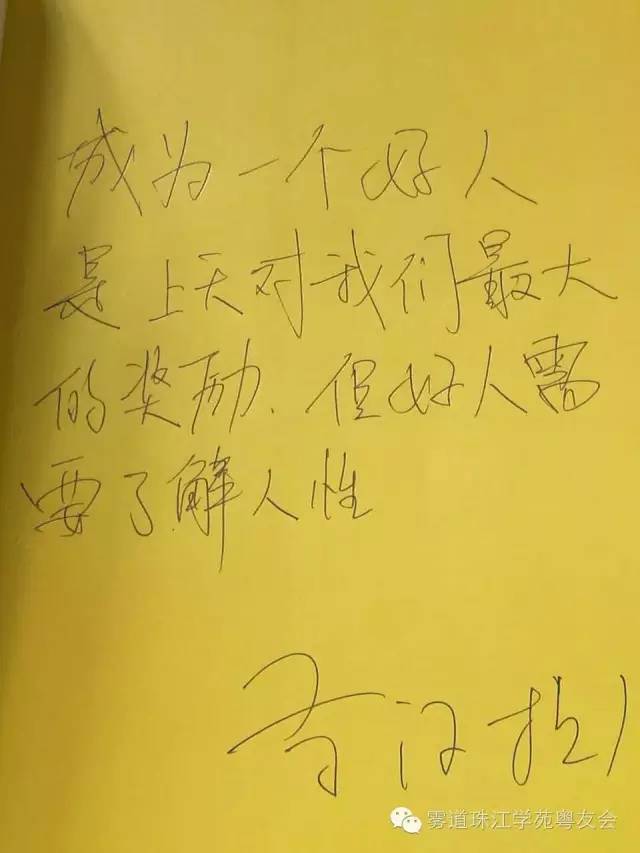 成为一个好人
是上天对我们最大
的奖励、但好人需
要了解人性
雾道珠江学苑粤友会